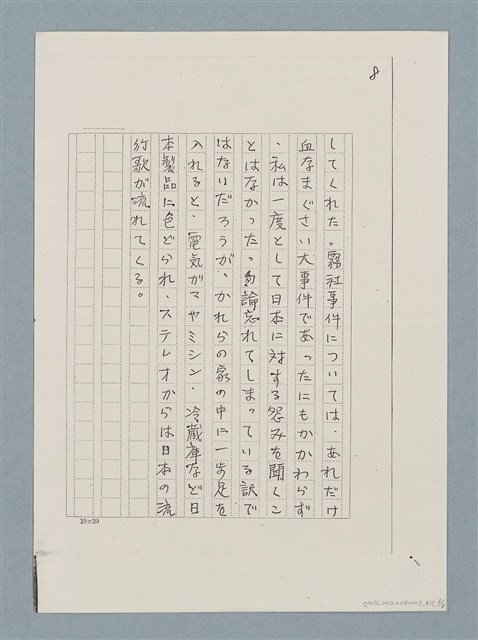 8
してくれた。霧社事件については、あれだけ
血なまぐさい大事件であったにもかかわらず
、私は一度として日本に対する怨みを聞くこ
とはなかった。勿論忘れてしまっている訳で
はないだろうが、かれらの家の中に一歩足を
入れると、電気がマやミシン、冷蔵庫など日
本製品に色どられ、ステレオからは日本の流
行歌が流れてくる。
10×20